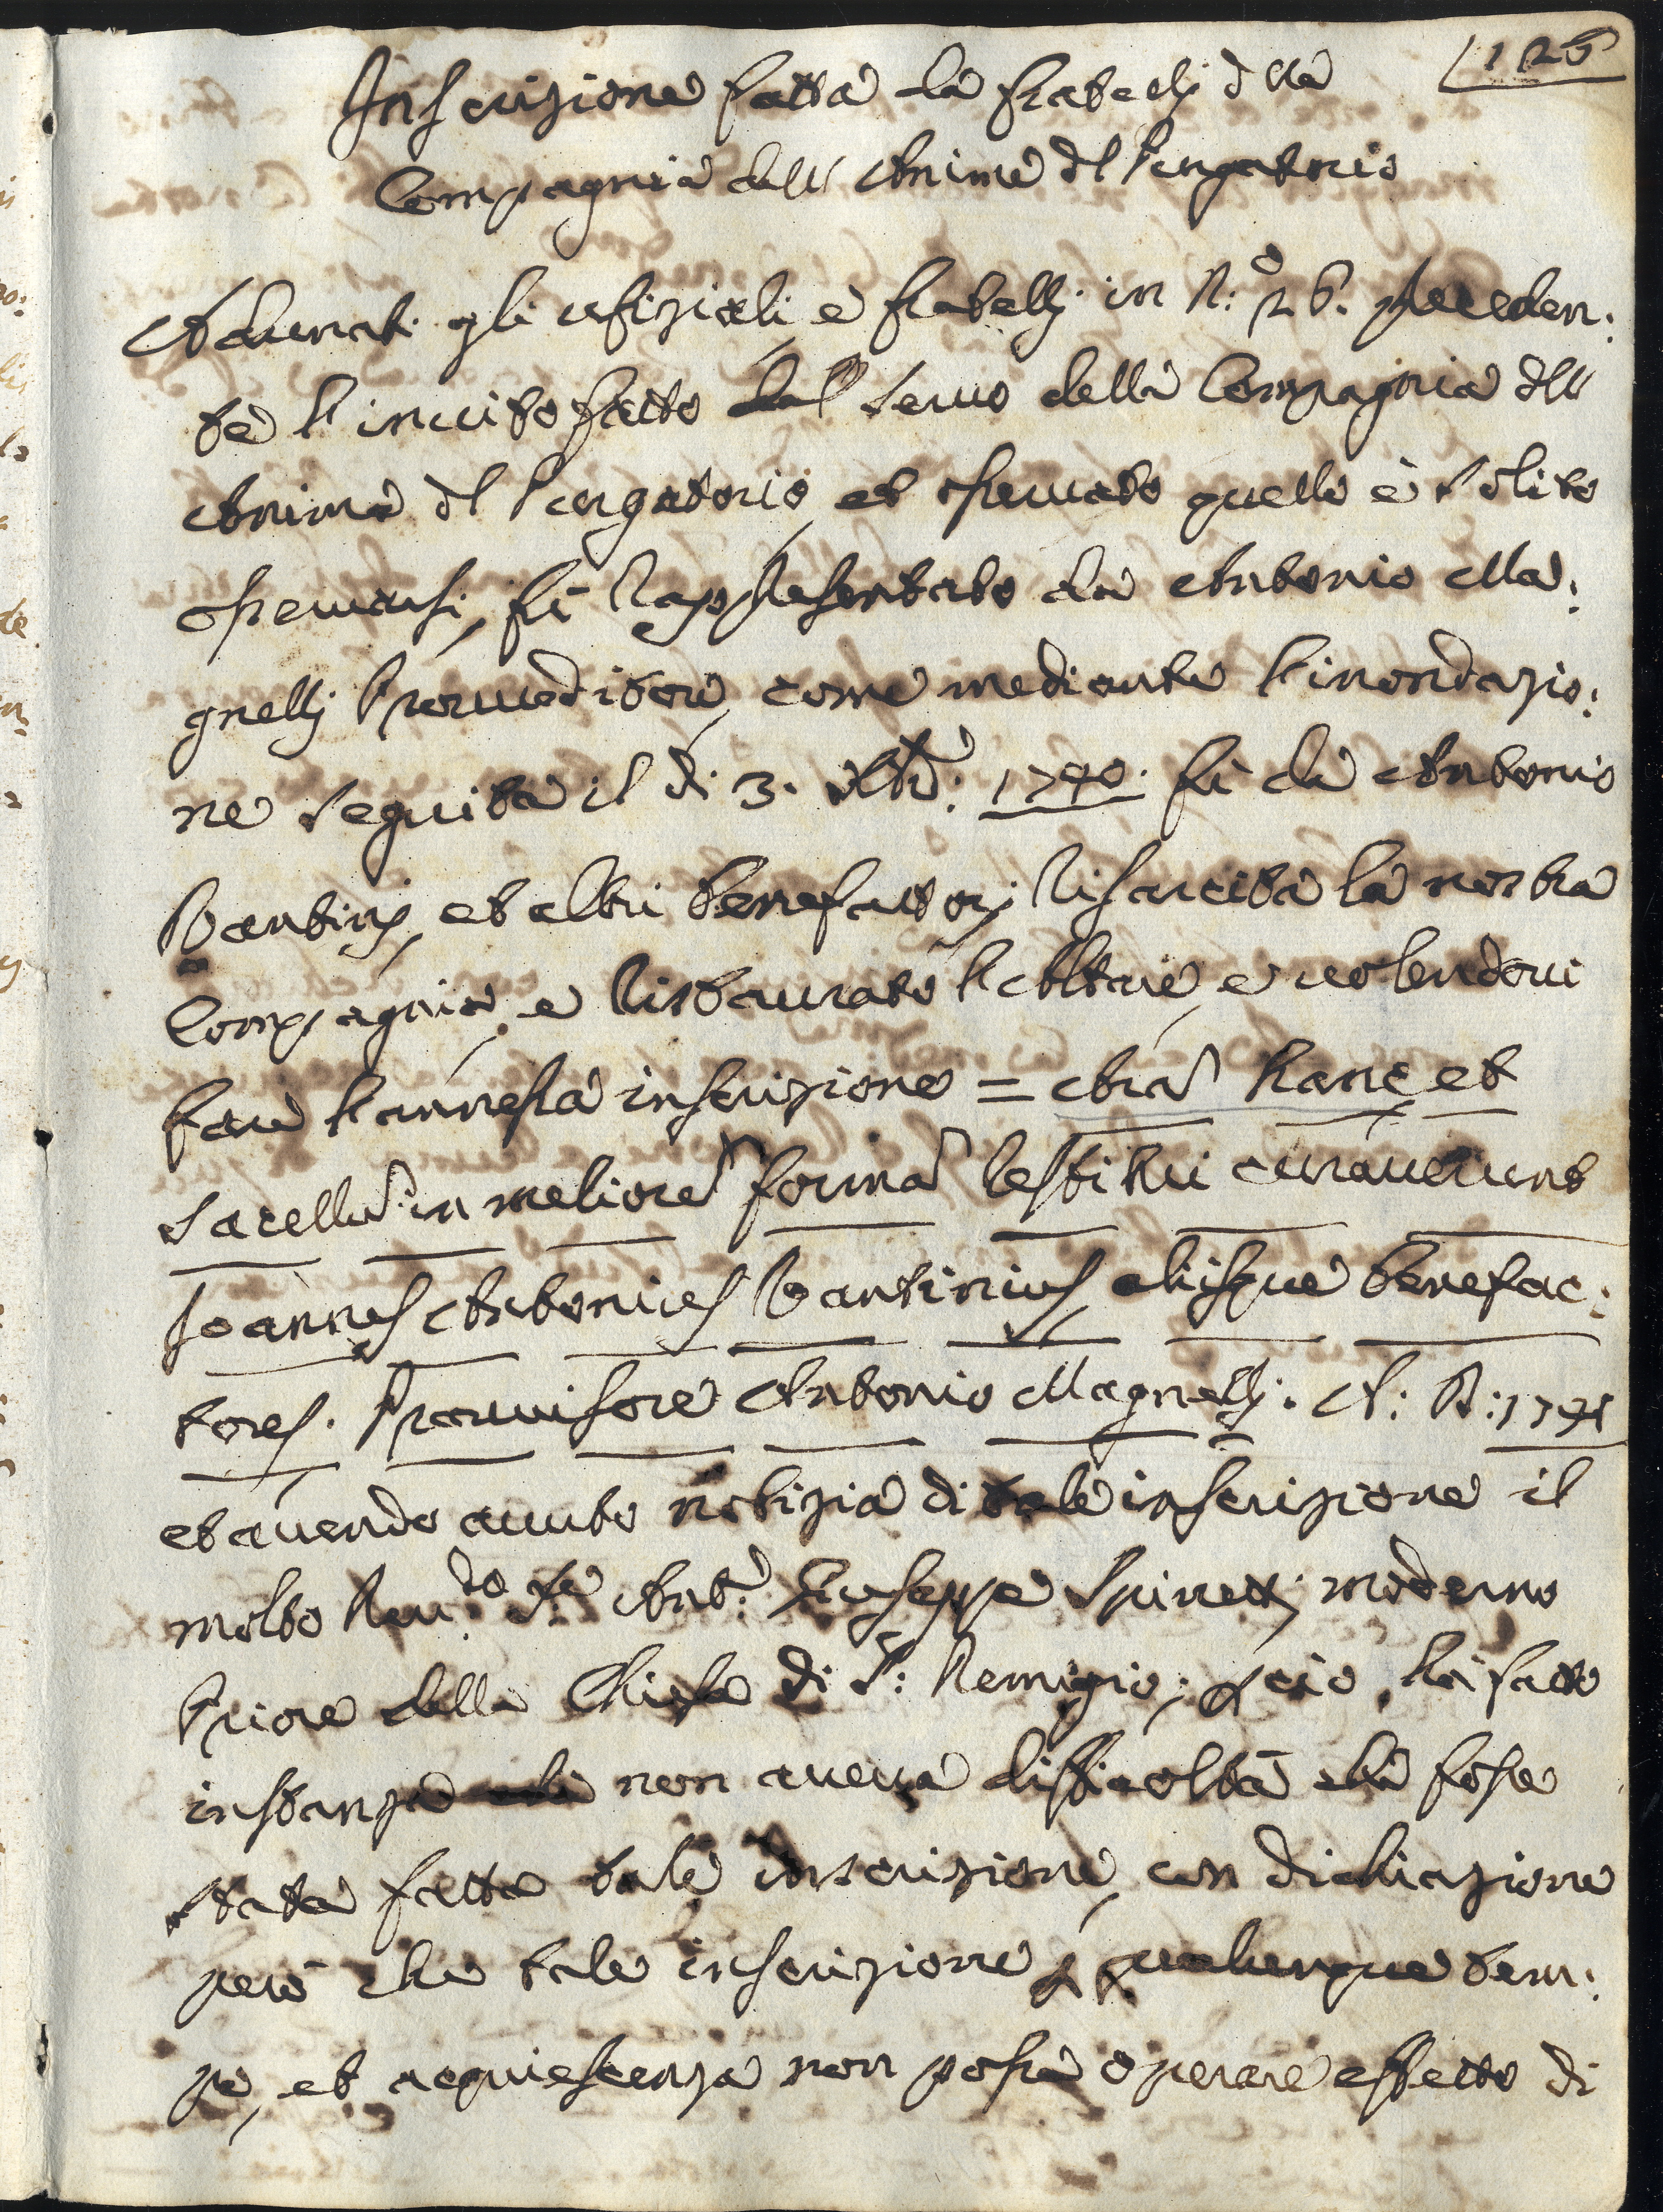 125
Inscrizione fatta da fratelli dlla
Compagnia dell Anime dl Purgatorio
Adunati gli ufiziali, e fratelli in N.º 26. preceden:
te l'invito fatto dal servo della Compagnia dll
Anime dl Purgatorio, et osservato quello è solito
osservarsi, fù rappresentato da Antonio Ma:
gnelli Provveditore, come mediante l'inondazio:
ne seguita il dì 3. Xbre: 1740. fù da Antonio
Bantini, et altri Benefattori risarcita la nostra
Compagnia, e ristaurato l'Altare, e volendovi
fare l'annessa inscrizione = Arã hanc, et
Sacellũ in meliorẽ formã restitui curaverunt
Joannes Antonius Bantinius, aliisque Benefac:
tores. Provvisore Antonio Magnelli. A: D: 1741
et avendo avuto notizia di tale inscrizione il
molto Revdo. Sre Ant: Giuseppe Spinetti moderno
Priore della Chiesa di S: Remigio; p ciò, ha fatto
instanza non aveva difficoltà che fosse
stata fatta tale inscrizione, con dichiazione
però che tale inscrizione p qualunque tem:
po, et acquiescenza non possa operare effetto di